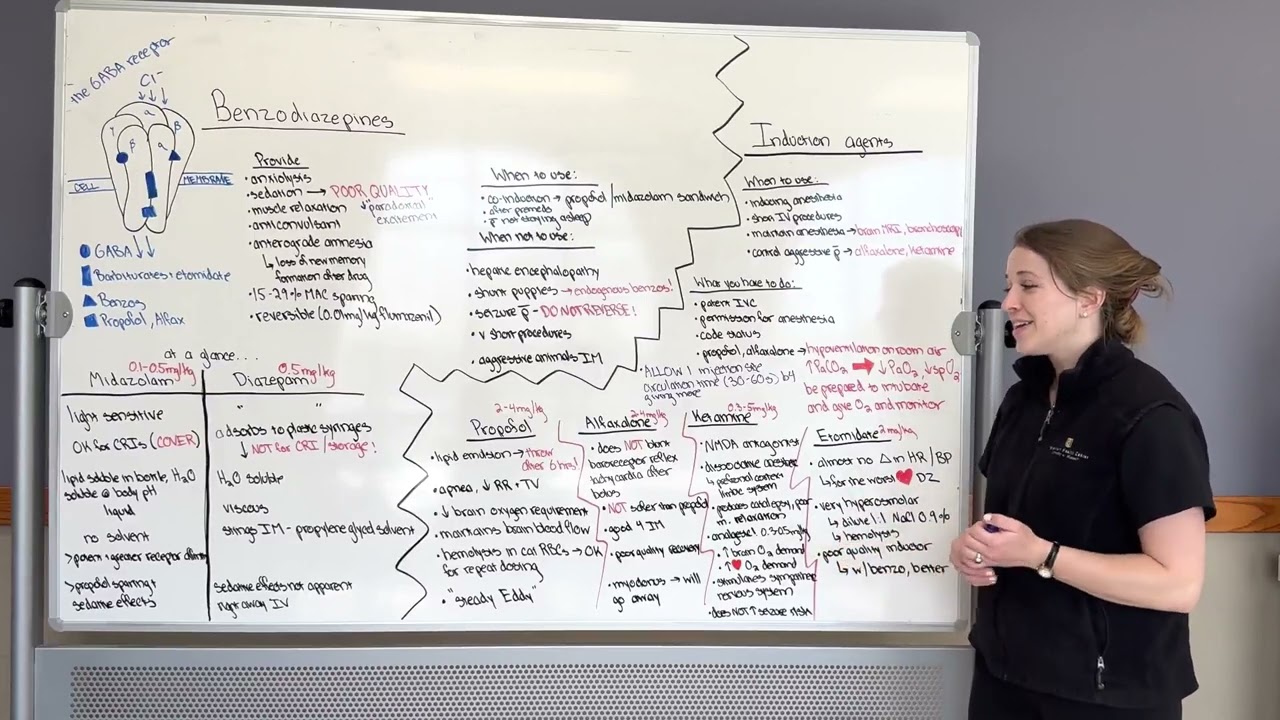 the GABA receptor
Cl-
α
γ
β
β
α
CELL
MEMBRANE
GABA ↓↓
Barbiturates + etomidate
Benzos
Propofol, Alfax
Benzodiazepines
Provide
• anxiolysis
• sedation → POOR QUALITY
↓ "paradoxical"
excitement
• muscle relaxation
• anticonvulsant
• anterograde amnesia
↳ loss of new memory
formation after drug
• 15-29% MAC sparing
• reversible (0.01mg/kg flumazenil)
When to use:
• co-induction → propofol/midazolam sandwich
• after premeds
• p̄ not staying asleep
When not to use:
• hepatic encephalopathy
• shunt puppies → endogenous benzos!
• seizure p̄ - DO NOT REVERSE!
• v short procedures
• aggressive animals IM
at a glance...
Midazolam 0.1-0.5mg/kg
light sensitive
OK for CRIs (COVER)
lipid soluble in bomb, H2O
soluble @ body pH
liquid
no solvent
> potent + greater receptor affinity
> propofol sparing +
sedative effects
Diazepam 0.5mg/kg
" "
adsorbs to plastic syringes
↓ NOT for CRI / storage!
H2O soluble
viscous
stings IM - propylene glycol solvent
sedative effects not apparent
right away IV
Induction agents
When to use:
• inducing anesthesia
• short IV procedures
• maintain anesthesia → brain MRI, bronchoscopy
• control aggressive p̄ → alfaxalone, ketamine
What you have to do:
• patent IVC
• permission for anesthesia
• code status
• propofol, alfaxalone → hypoventilation on room air
↑PaCO2 ➡ ↓PaO2, ↓spO2
be prepared to intubate
and give O2 and monitor
• ALLOW 1 injection site
circulation time (30-60s) b4
giving more
Propofol 2-4mg/kg
• lipid emulsion → throw
after 6 hrs!
• apnea, ↓ RR + TV
• ↓ brain oxygen requirement
• maintains brain blood flow
• hemolysis in cat RBCs → OK
for repeat dosing
• "steady Eddy"
Alfaxalone 2-4mg/kg
• does NOT blunt
baroreceptor reflex
tachycardia after
bolus
• NOT safer than propofol
• good 4 IM
• poor quality recovery
• myoclonus → will
go away
Ketamine 0.3-5mg/kg
• NMDA antagonist
• dissociative anesthetic
limbic system
• produces catalepsy, poor
m. relaxation
• analgesic!
• ↑ brain O2 demand
• ↑ ♥ O2 demand
• stimulates sympathetic
nervous system
• does NOT ↑ seizure risk
Etomidate 2mg/kg
• almost no Δ in HR/BP
↳ for the worst ♥ DZ
• very hyperosmolar
↳ dilute 1:1 NaCl 0.9%
↳ hemolysis
• poor quality inductor
↳ w/ benzo, better